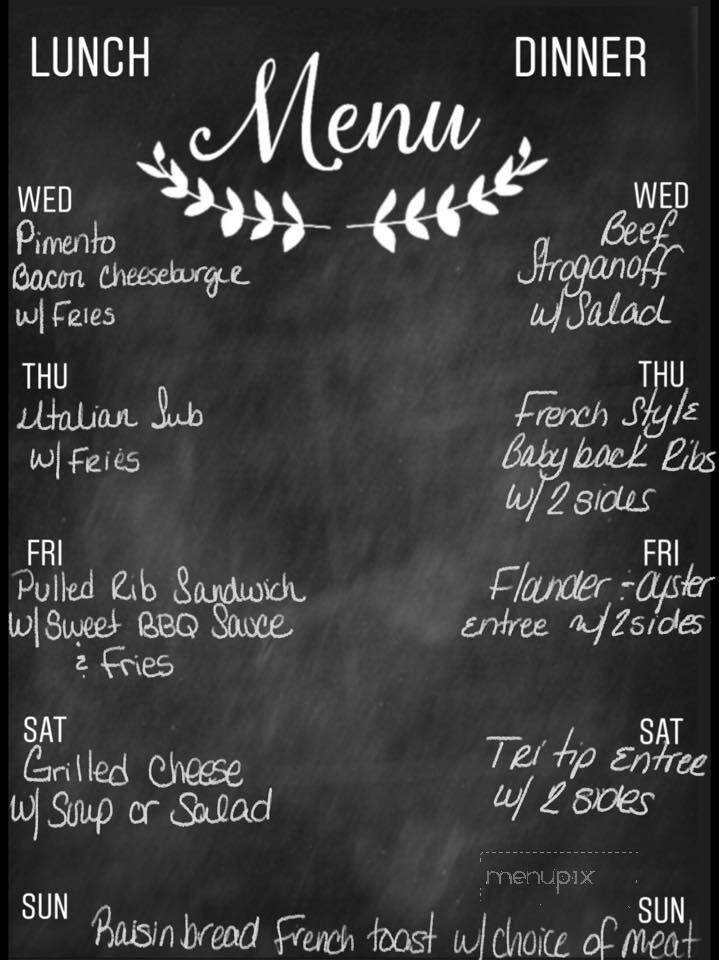 LUNCH
DINNER
Menu
WED
Pimento
Bacon cheeseburger
w/ Fries
WED
Beef
Stroganoff
w/ Salad
THU
Italian Sub
w/ Fries
THU
French Style
Baby back Ribs
w/ 2 sides
FRI
Pulled Rib Sandwich
w/ Sweet BBQ Sauce
& Fries
FRI
Flounder & oyster
Entree w/ 2 sides
SAT
Grilled Cheese
w/ Soup or Salad
SAT
Tri tip Entree
w/ 2 sides
menupix
SUN
SUN
Raisin bread French toast w/ choice of meat